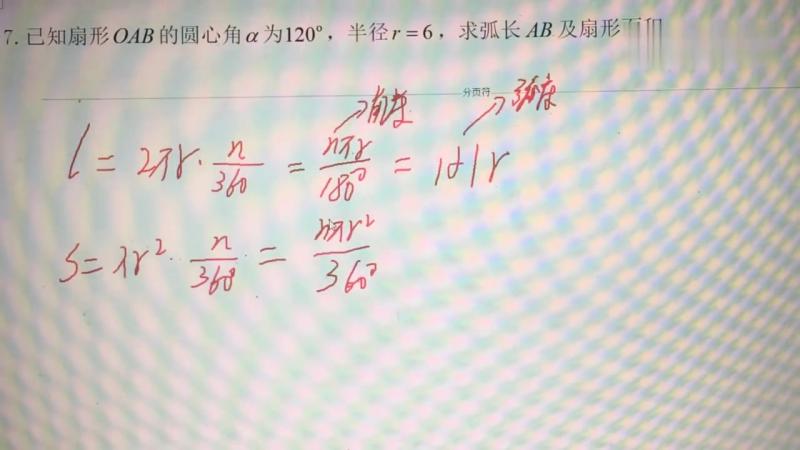 7. 已知扇形OAB的圆心角α为120°，半径r=6，求弧长AB及扇形面积
分页符
→角度 →弧度
l = 2πr · n/360 = nπr/180° = |α|r
S = πr² · n/360° = nπr²/360°